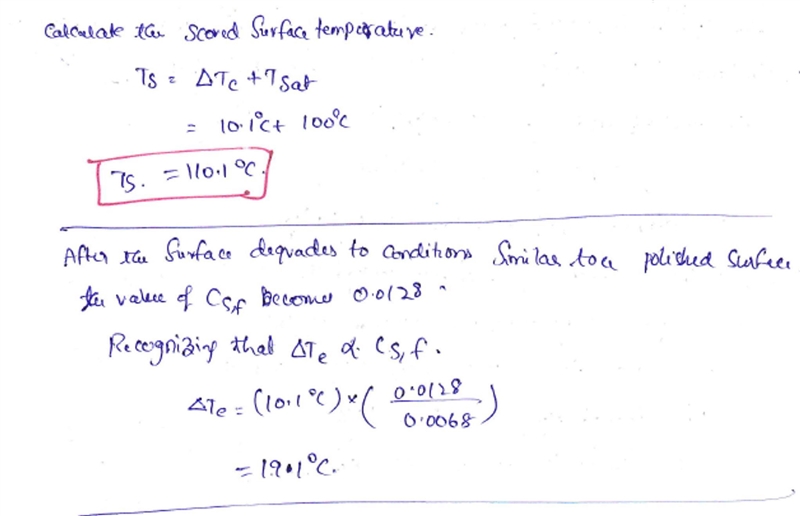 Calculate the scored surface temperature.
Ts = ΔTe + Tsat
= 10.1°C + 100°C
Ts. = 110.1 °C.
After the surface degrades to conditions Similar to a polished surface
the value of Cs,f become 0.0128.
Recognizing that ΔTe α Cs,f.
ΔTe = (10.1°C) × (0.0128/0.0068)
= 19.1°C.